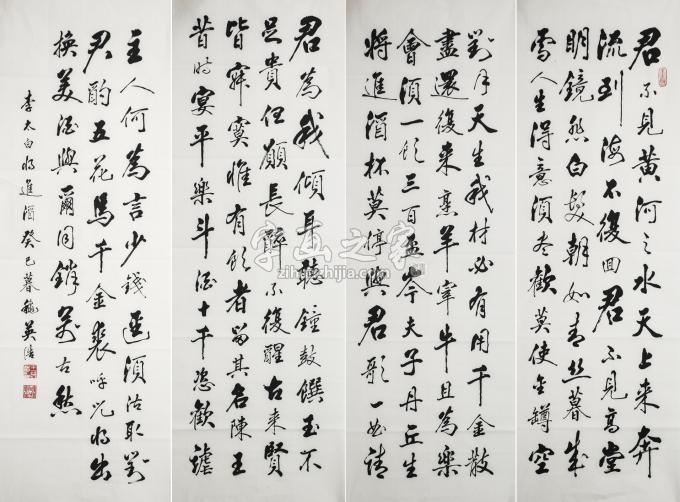 君不見黄河之水天上来奔
流到海不復回君不見高堂
明鏡悲白髮朝如青丝暮成
雪人生得意須尽歡莫使金罇空
對月天生我材必有用千金散
盡還復来烹羊宰牛且為樂
會須一飲三百盃岑夫子丹丘生
將進酒杯莫停與君歌一曲請
君為我傾耳聽鐘鼓饌玉不
足貴但願長醉不復醒古来賢
皆寂寞惟有飲者留其名陳王
昔时宴平樂斗酒十千恣歡謔
主人何為言少錢逕須沽取對
君酌五花馬千金裘呼儿将出
換美酒與爾同銷萬古愁
李太白将進酒癸巳暮秋英
字画之家
zihuazhijia.com